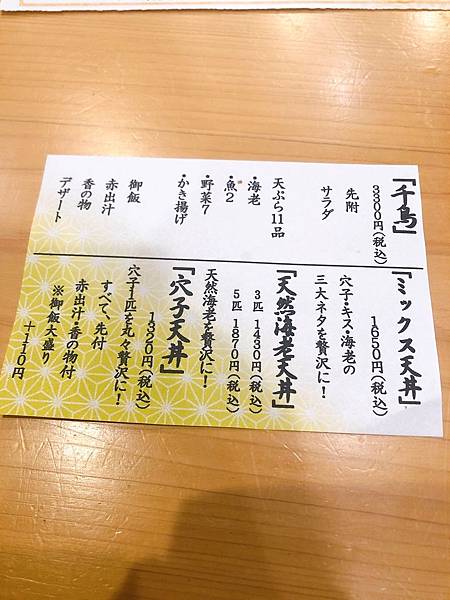 『千鳥』
3300円(税込)
先附
サラダ
天ぷら11品
・海老
・魚2
・野菜7
・かき揚げ
御飯
赤出汁
香の物
デザート
『ミックス天丼』
1650円(税込)
穴子・キス・海老の
三大ネタを贅沢に!
『天然海老天丼』
3匹 1430円(税込)
5匹 1870円(税込)
天然海老を贅沢に!
『穴子天丼』
1320円(税込)
穴子1匹を丸々贅沢に!
すべて、先付
赤出汁・香の物付
※御飯大盛り
+110円